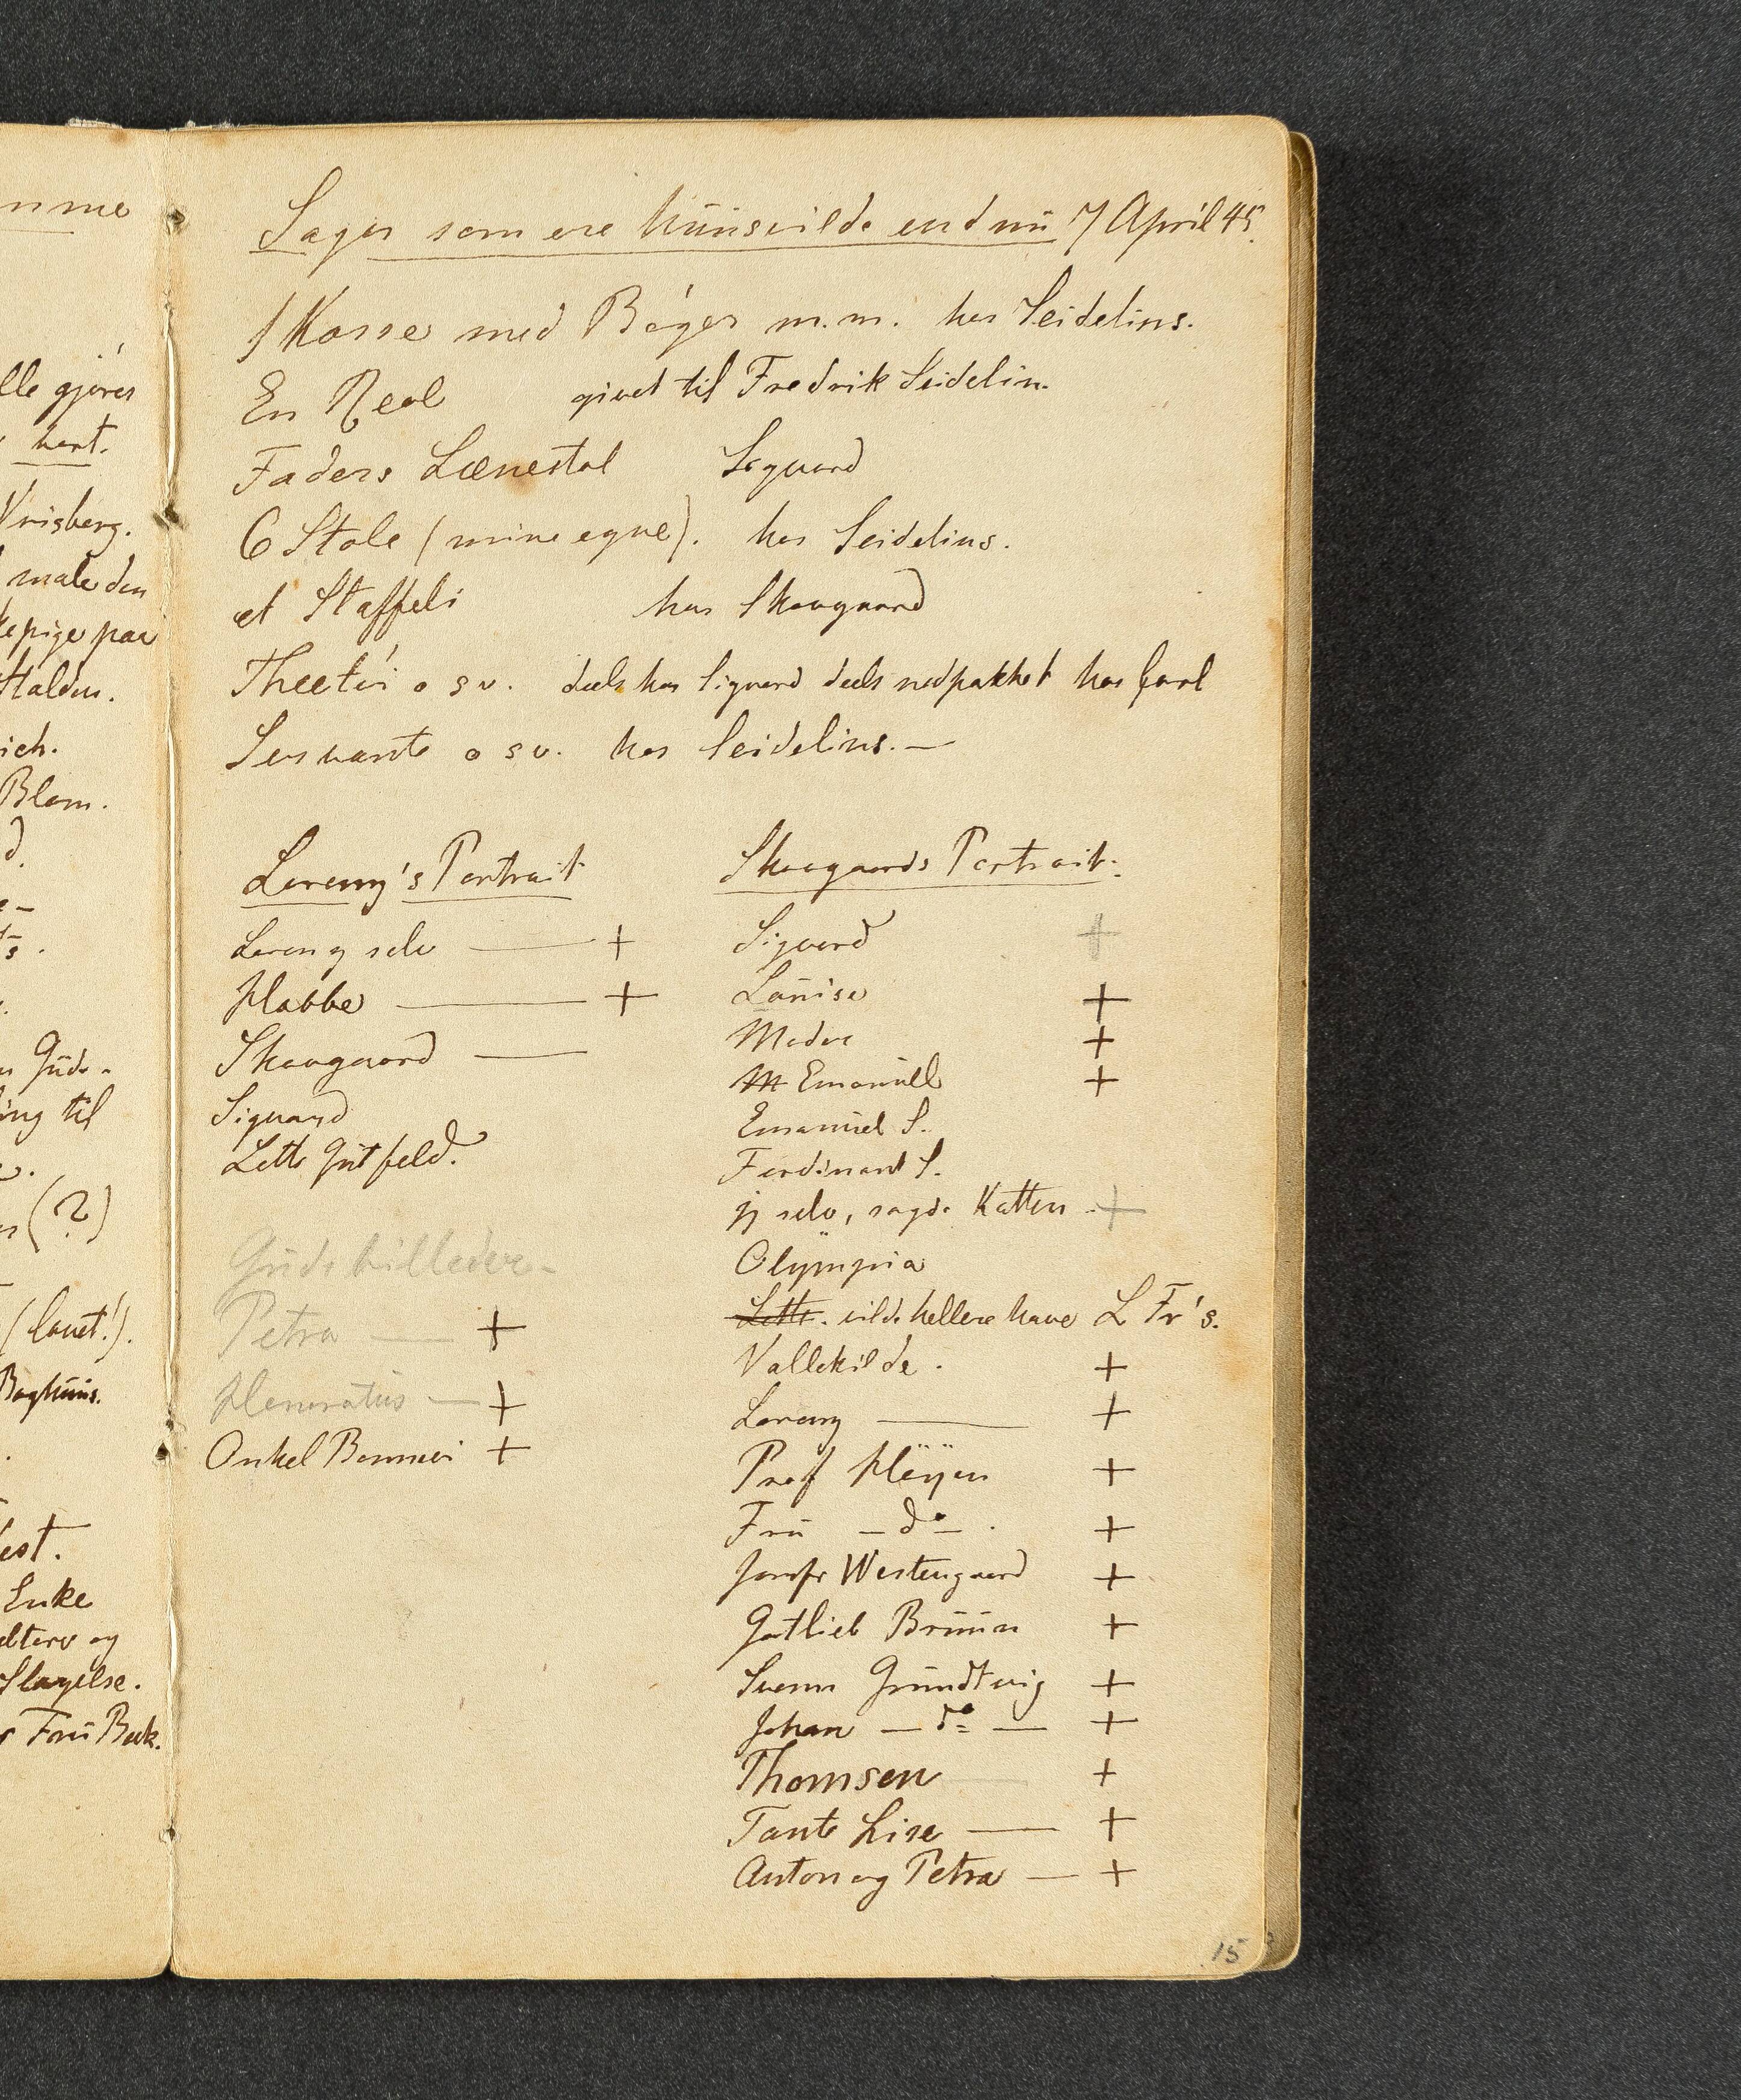 nme
lle gjöres
vert.
Vrisberg.
male den
kepige paa
Stalden.
ich.
Blom.
d.
e-
ts.
Guds-
ing til
(?)
(lovet!).
Baghuus.
est.
Enke
og
Slagelse.
Fru Beck.
Sager som ere huusvilde end nu 7 April 45.
1 Kasse med Böger m.m. hos Seidelins.
En Reol givet til Fredrik Seidelin.
Faders Lænestol Sigvard
6 Stole (mine egne). hos Seidelins.
et Staffeli hos Skovgaard
Theetöi o s v. deels hos Sigvard deels nedpakket hos Carl
Servante o s v. hos Seidelins. —
Loreny's Portrait
Loreny selv — +
Habbe — +
Skovgaard —
Sigvard
Lotte Gutfeld.
Gudebilleder -
Petra — +
Honoratus — +
Onkel Bonnevi +
Skovgaards Portrait:
Sigvard +
Louise +
Moder +
M Emanuel +
Emanuel S.
Ferdinant S.
jeg selv, sagde Katten - +
Olÿmpia
Lotte. vilde hellere have L Fr's.
Vallekilde. +
Loreny — +
Prof Höÿen +
Fru — do — . +
Jomfr Westengaard +
Gotlieb Bruun +
Svenn Grundtvig +
Johan — do — +
Thomsen — +
Tante Lise — +
Anton og Petra — +
15